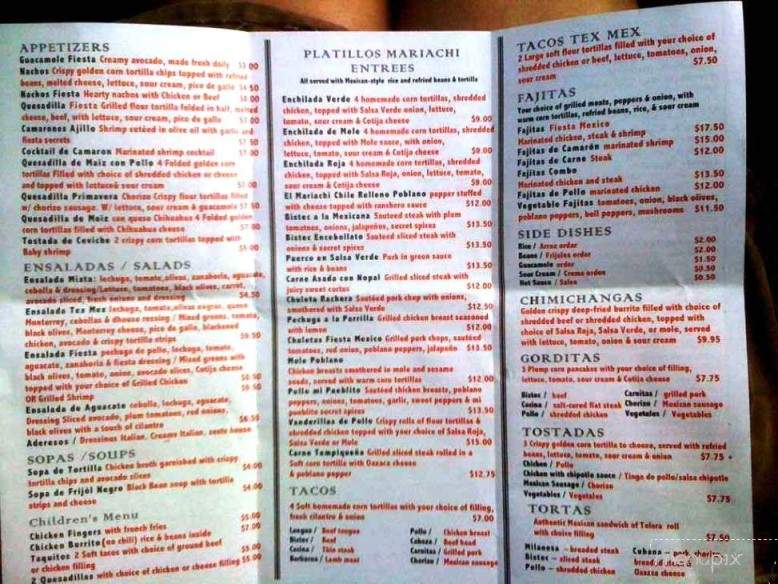 APPETIZERS
Guacamole Fiesta Creamy avocado, made fresh daily $3.00
Nachos Crispy golden corn tortilla chips topped with refried
beans, melted cheese, lettuce, sour cream, pico de gallo $4.50
Nachos Fiesta Hearty nachos with Chicken or Beef
Quesadilla Fiesta Grilled flour tortilla folded in half, melted
cheese, beef, with lettuce, sour cream, pico de gallo
Camarones Ajillo Shrimp sautéed in olive oil with garlic and
fiesta secrets
Cocktail de Camaron Marinated shrimp cocktail
Quesadilla de Maiz con Pollo 4 Folded golden corn
tortillas Filled with choice of shredded chicken or cheese
and topped with lettuce& sour cream
Quesadilla Primavera Chorizo Crispy flour tortillas filled
w/ chorizo sausage. W/ lettuce, sour cream & guacamole
Quesadilla de Maiz con queso Chihuahua 4 Folded golden
corn tortillas filled with Chihuahua cheese
Tostada de Ceviche 2 crispy corn tortillas topped with
Baby shrimp
ENSALADAS / SALADS
Ensalada Mixta: lechuga, tomate, olivas, zanahoria, aguacate,
cebolla & dressing/Lettuce, tomatoes, black olives, carrot,
avocado sliced, fresh onions and dressing $4.50
Ensalada Tex Mex lechuga, tomate, olivas negras, queso
Monterrey, cebollas & dhouse ressing / Mixed greens, tomato,
black olives, Monterrey cheese, pico de gallo, blackened
chicken, avocado & crispy tortilla strips
Ensalada Fiesta pechuga de pollo, lechuga, tomate,
aguacate, zanahoria & fiesta dressing / Mixed greens with
black olives, tomato, onion, avocado slices, Cotija cheese
topped with your choice of Grilled Chicken
OR Grilled Shrimp
Ensalada de Aguacate cebolla, lechuga, aguacate,
Dressing Sliced avocado, plum tomatoes, red onions,
black olives with a touch of cilantro
Aderesos / Dressings Italian, Creamy Italian, zesty house
SOPAS /SOUPS
Sopa de Tortilla Chicken broth garnished with crispy
tortilla chips and avocado slices $4.00
Sopa de Frijol Negro Black Bean soup with tortilla
strips and cheese $4.00
Children's Menu
Chicken Fingers with french fries $5.00
Chicken Burrito (no chili) rice & beans inside $7.00
Taquitos 2 Soft tacos with choice of ground beef
or chicken filling $5.00
2 Quesadillas with choice of chicken or cheese filling $5.00
PLATILLOS MARIACHI
ENTREES
All served with Mexican-style rice and refried beans & tortilla
Enchilada Verde 4 homemade corn tortillas, shredded
chicken, topped with Salsa Verde onion, lettuce,
tomato, sour cream & Cotija cheese $9.00
Enchilada de Mole 4 homemade corn tortillas, shredded
chicken, topped with Mole sauce, with onion,
lettuce, tomato, sour cream & Cotija cheese $9.00
Enchilada Roja 4 homemade corn tortillas, shredded
chicken, topped with Salsa Roja, onion, lettuce, tomato,
sour cream & Cotija cheese $9.00
El Mariachi Chile Relleno Poblano pepper stuffed
with cheese topped with ranchero sauce $12.00
Bistec a la Mexicana Sauteed steak with plum
tomatoes, onions, jalapeños, secret spices $13.50
Bistec Encebollado Sauteed sliced steak with
onions & secret spices $13.50
Puerco en Salsa Verde Pork in green sauce
with rice & beans $13.50
Carne Asada con Nopal Grilled sliced steak with
juicy sweet cactus $12.00
Chuleta Rachera Sautéed pork chop with onions,
smothered with Salsa Verde $12.50
Pechuga a la Parrilla Grilled chicken breast seasoned
with lemon $12.00
Chuletas Fiesta Mexico Grilled pork chops, sautéed
tomatoes, red onion, poblano peppers, jalapeño $13.50
Mole Poblano
Chicken breasts smothered in mole and sesame
seeds, served with warm corn tortillas $12.00
Pollo mi Pueblito Sautéed chicken breasts, poblano
peppers, onions, tomatoes, garlic, sweet peppers & mi
pueblito secret spices $13.50
Vanderillas de Pollo Crispy rolls of flour tortillas &
shredded chicken topped with your choice of Salsa Roja,
Salsa Verde or Mole $15.00
Carne Tampiqueña Grilled sliced steak rolled in a
Soft corn tortilla with Oaxaca cheese
& poblano pepper $12.75
TACOS
4 Soft homemade corn tortillas with your choice of filling,
fresh cilantro & onion $7.00
Lengua / Beef tongue
Bistec / Beef
Cecina / Thin steak
Barbacoa / Lamb meat
Pollo / Chicken breast
Cabeza / Beef head
Carnitas / Grilled pork
Chorizo / Mexican sausage
TACOS TEX MEX
2 Large soft flour tortillas filled with your choice of
shredded chicken or beef, lettuce, tomatoes, onion,
sour cream $7.50
FAJITAS
Your choice of grilled meats, peppers & onion, with
warm corn tortillas, refried beans, rice, & sour cream
Fajitas Fiesta Mexico
Marinated chicken, steak & shrimp $17.50
Fajitas de Camarón marinated shrimp $15.00
Fajitas de Carne Steak $12.00
Fajitas Combo
Marinated chicken and steak $13.50
Fajitas de Pollo marinated chicken $12.00
Vegetable Fajitas tomatoes, onion, black olives,
poblano peppers, bell peppers, mushrooms $11.50
SIDE DISHES
Rice / Arroz order $2.00
Beans / Frijoles order $2.00
Guacamole order $1.50
Sour Cream / Crema orden $0.50
Hot Sauce / Salsa $0.50
CHIMICHANGAS
Golden crispy deep-fried burrito filled with choice of
shredded beef or shredded chicken, topped with
choice of Salsa Roja, Salsa Verde, or mole, served
with lettuce, tomato, onion & sour cream $9.95
GORDITAS
3 Plump corn pancakes with your choice of filling,
lettuce, tomato, sour cream & Cotija cheese $7.75
Bistec / beef
Cecina / salt-cured flat steak
Pollo / shredded chicken
Carnitas / grilled pork
Chorizo / Mexican sausage
Vegetales / Vegetables
TOSTADAS
3 Crispy golden corn tortilla to cheese, served with refried
beans, lettuce, tomato, sour cream & onion $7.75
Chicken / Pollo
Chicken with chipotle sauce / Tinga de pollo/salsa chipotle
Mexican Sausage / Chorizo
Vegetables / Vegetales $7.75
TORTAS
Authentic Mexican sandwich of Telera roll
with choice filling $7.50
Milanesa – breaded steak
Bistec – sliced steak
Pollo – shredded chicken
Cubana – pork, chorizo,
Oaxaca cheese
menupix